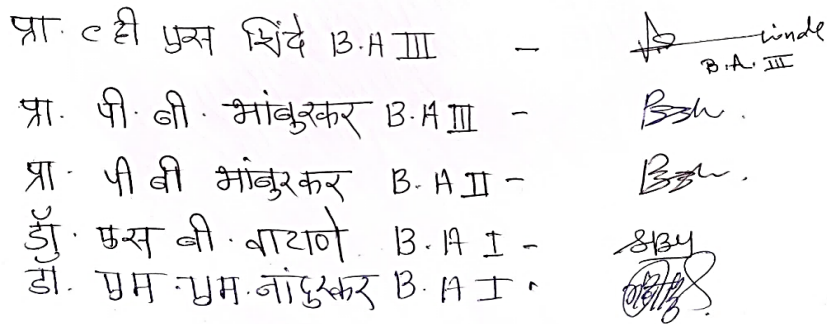 प्रा. व्ही एस शिंदे B.A III -
B.A. III
प्रा. पी. बी. भांबुरकर B.A III -
प्रा. पी बी भांबुरकर B.A II -
डॉ. एस बी. वाटाणे B.A I - SBY
डॉ. एम.एम.नांदुरकर B.A I.